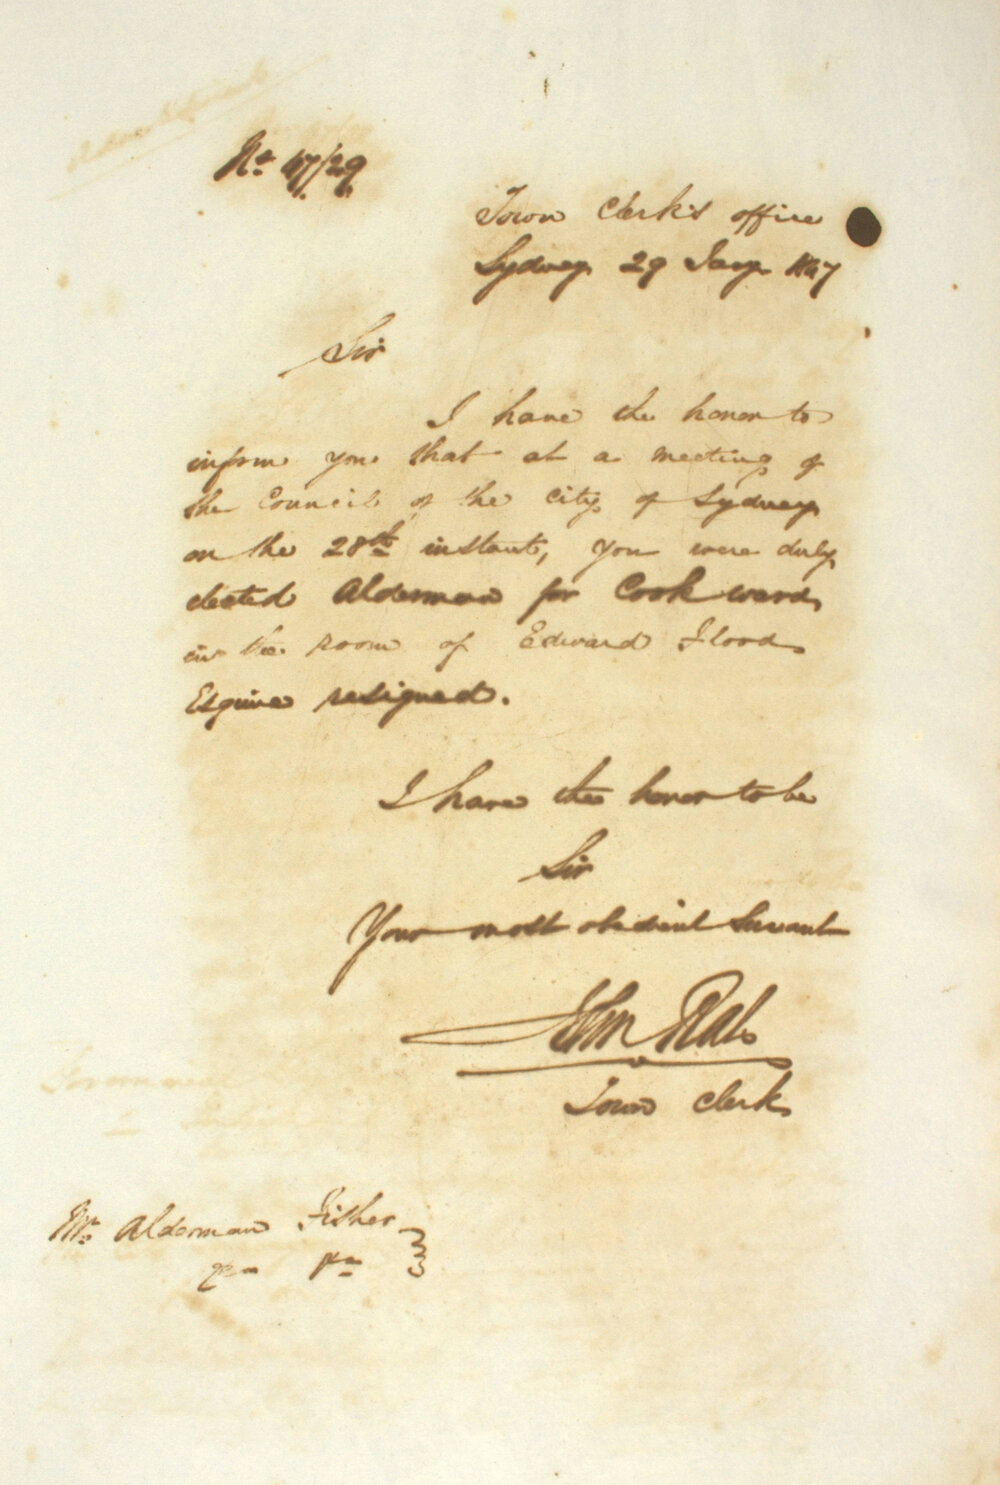 No. 47/29
Town Clerk's office
Sydney 29 Jany 1847
Sir
I have the honor to
inform you that at a meeting of
the Council of the City of Sydney
on the 28th instant, you were duly
elected Alderman for Cook ward
in the room of Edward Flood
Esquire resigned.
I have the honor to be
Sir
Your most obedient Servant
John Rae
Town Clerk
Mr. Alderman Fisher